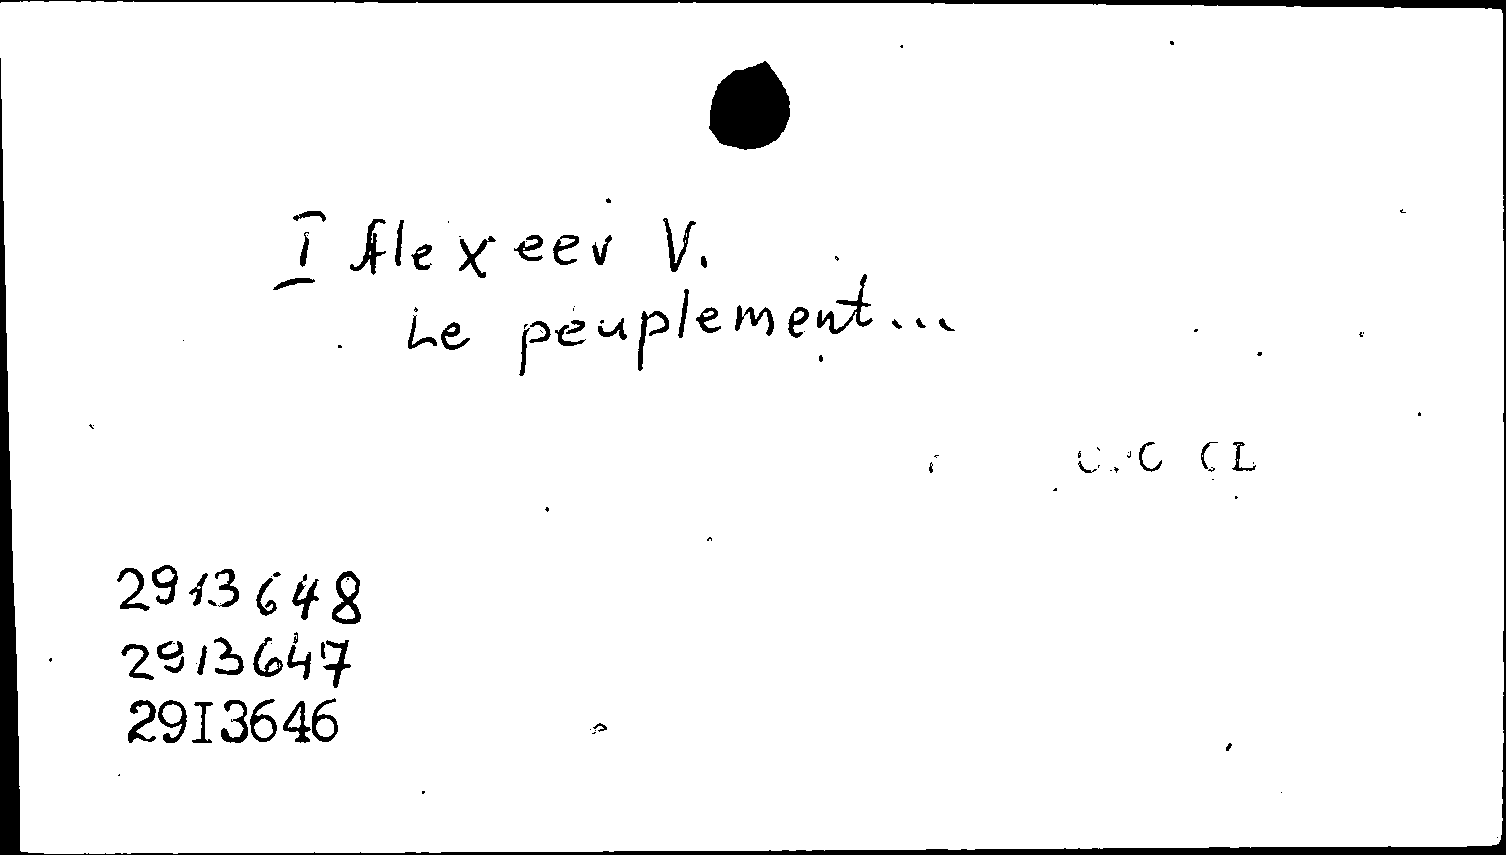 I Alexeev V.
Le peuplement...
2913648
2913647
29I3646